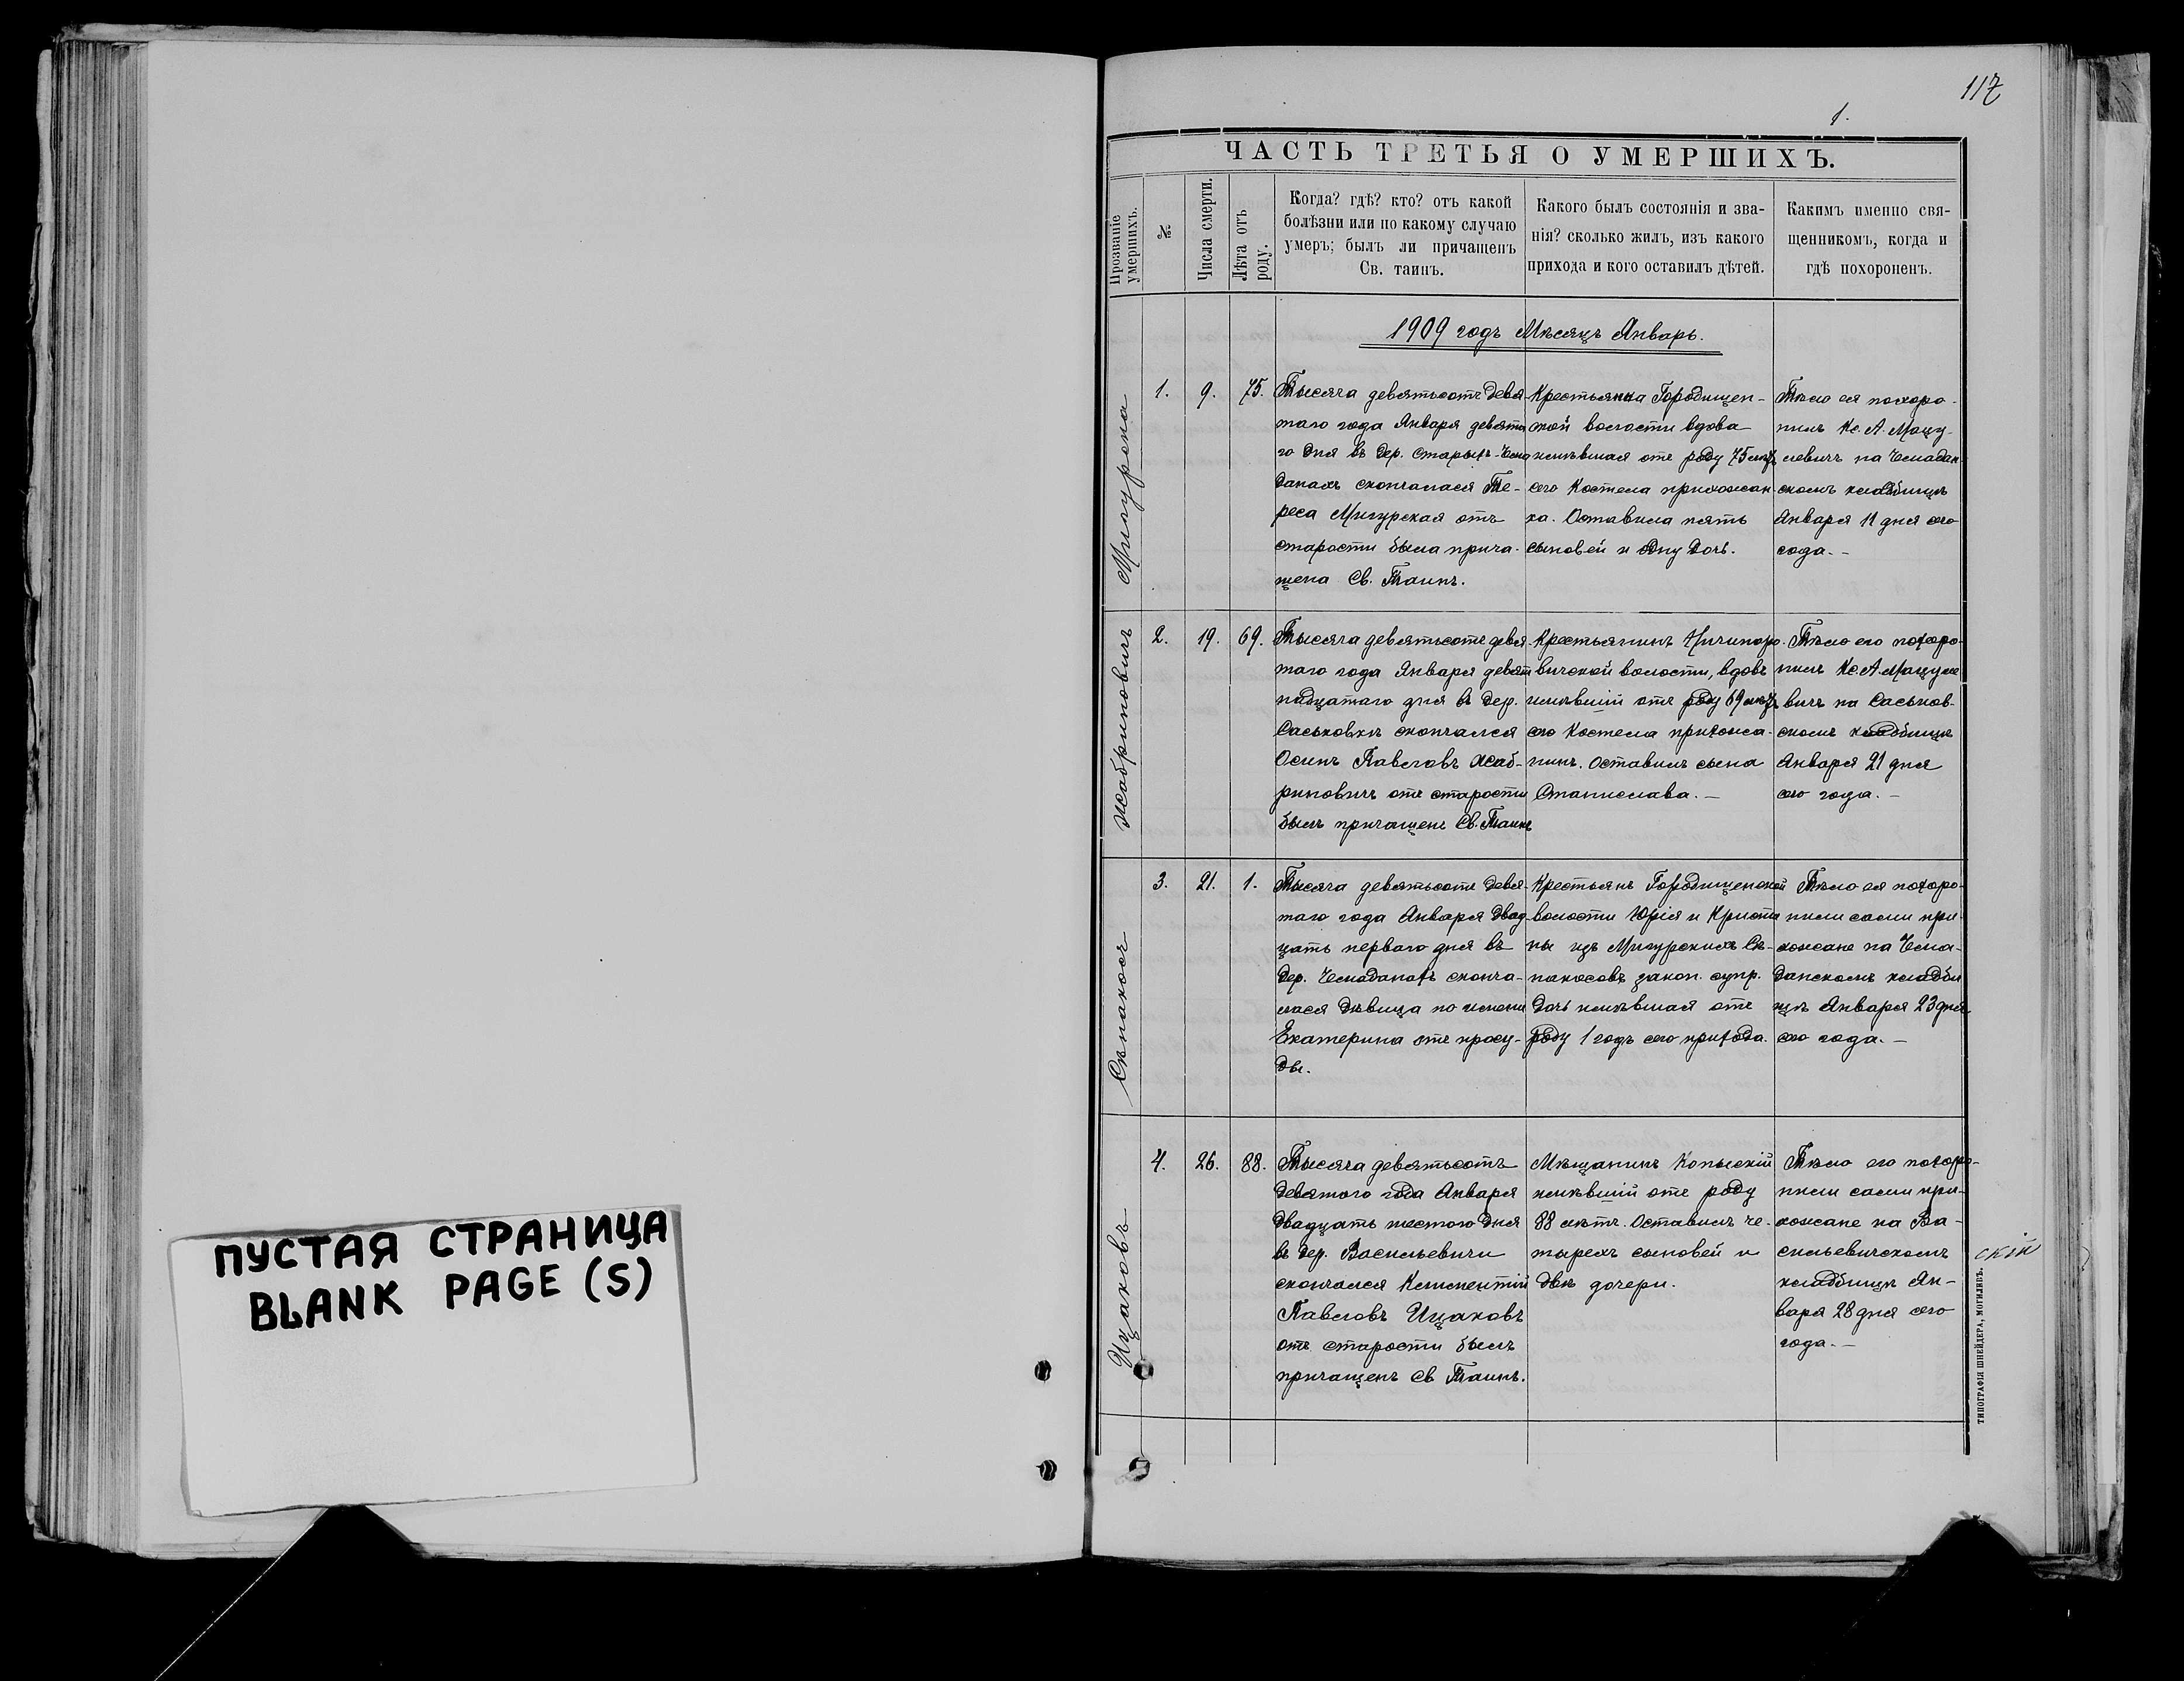 ПУСТАЯ СТРАНИЦА
BLANK PAGE (S)
117
1.
ЧАСТЬ ТРЕТЬЯ О УМЕРШИХЪ.
Прозваніе умершихъ.
№
Числа смерти.
Лѣта отъ роду.
Когда? гдѣ? кто? отъ какой
болѣзни или по какому случаю
умеръ; былъ ли причащенъ
Св. таинъ.
Какого былъ состоянія и зва-
нія? сколько жилъ, изъ какого
прихода и кого оставилъ дѣтей.
Какимъ именно свя-
щенникомъ, когда и
гдѣ похороненъ.
1909 годъ Мѣсяцъ Январь.
1. 9. 75.
Тысяча девятьсотъ девя-
таго года Января девята
го дня въ дер. Старыхъ-Чема
данахъ скончалася Те-
реса Мигурская отъ
старости была прича-
щена Св. Таинъ.
Крестьянка Городищен-
ской волости вдова
имѣвшая отъ роду 75 лѣтъ
сего Костела прихожан-
ка. Оставила пять
сыновей и одну дочь.
Тѣло ея похоро-
нилъ Кс. А. Мацу-
левичъ на Чемадан-
скомъ кладбищѣ
Января 11 дня сего
года.-
Жабриновичъ
2. 19. 69.
Тысяча девятьсотъ девя-
таго года Января девят
надцатаго дня въ дер.
Саськовкѣ скончался
Осипъ Павловъ Жаб-
риновичъ отъ старости
былъ причащенъ Св. Таинъ
Крестьянинъ
вичской волости, вдовъ
имѣвшій отъ роду 69 лѣтъ
сего Костела прихожа-
нинъ. Оставилъ сына
Станислава.-
Тѣло его похоро-
нилъ Кс. А. Мацуле
вичъ на Саськов-
скомъ кладбищѣ
Января 21 дня
сего года.-
3. 21. 1.
Тысяча девятьсотъ девя-
таго года Января двад-
цать перваго дня въ
дер. Чемоданахъ сконча-
лася дѣвица по имени
Екатерина отъ просту-
ды.
Крестьянъ Городищенской
волости Юрія и Христи
ны изъ Мигурскихъ Сѣ-
накосовъ закон. супр.
дочь имѣвшая отъ
роду 1 годъ сего прихода.
Тѣло ея похоро-
нили сами при-
хожане на Чема-
данскомъ кладби
щѣ Января 23 дня
сего года.-
Ицаковъ
4. 26. 88.
Тысяча девятьсотъ
девятого года Января
двадцать шестого дня
въ дер. Васильевичи
скончался Климентій
Павловъ Ицаковъ
отъ старости былъ
причащенъ Св Таинъ.
Мѣщанинъ Копыскій
имѣвшій отъ роду
88 лѣтъ. Оставилъ че-
тырехъ сыновей и
двѣ дочери.
Тѣло его похоро-
нили сами при-
хожане на Ва-
сильевичскомъ
кладбищѣ Ян-
варя 28 дня сего
года.-
скій
ТИПОГРАФІЯ ШНЕЙДЕРА, МОГИЛЕВЪ.